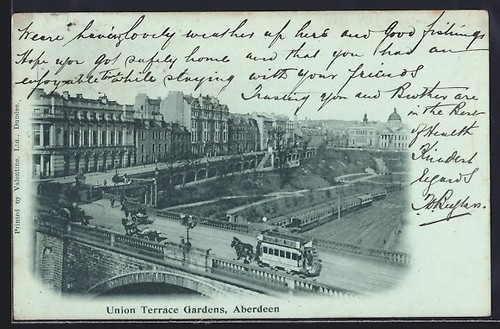 We are having lovely weather up here and Good fishings
Hope you got safely home and that you had an
enjoyable time while staying with your friends
Trusting you and Brother are
in the Best
of Health
Kindest
regards
Printed by Valentine, Ltd., Dundee.
Union Terrace Gardens, Aberdeen